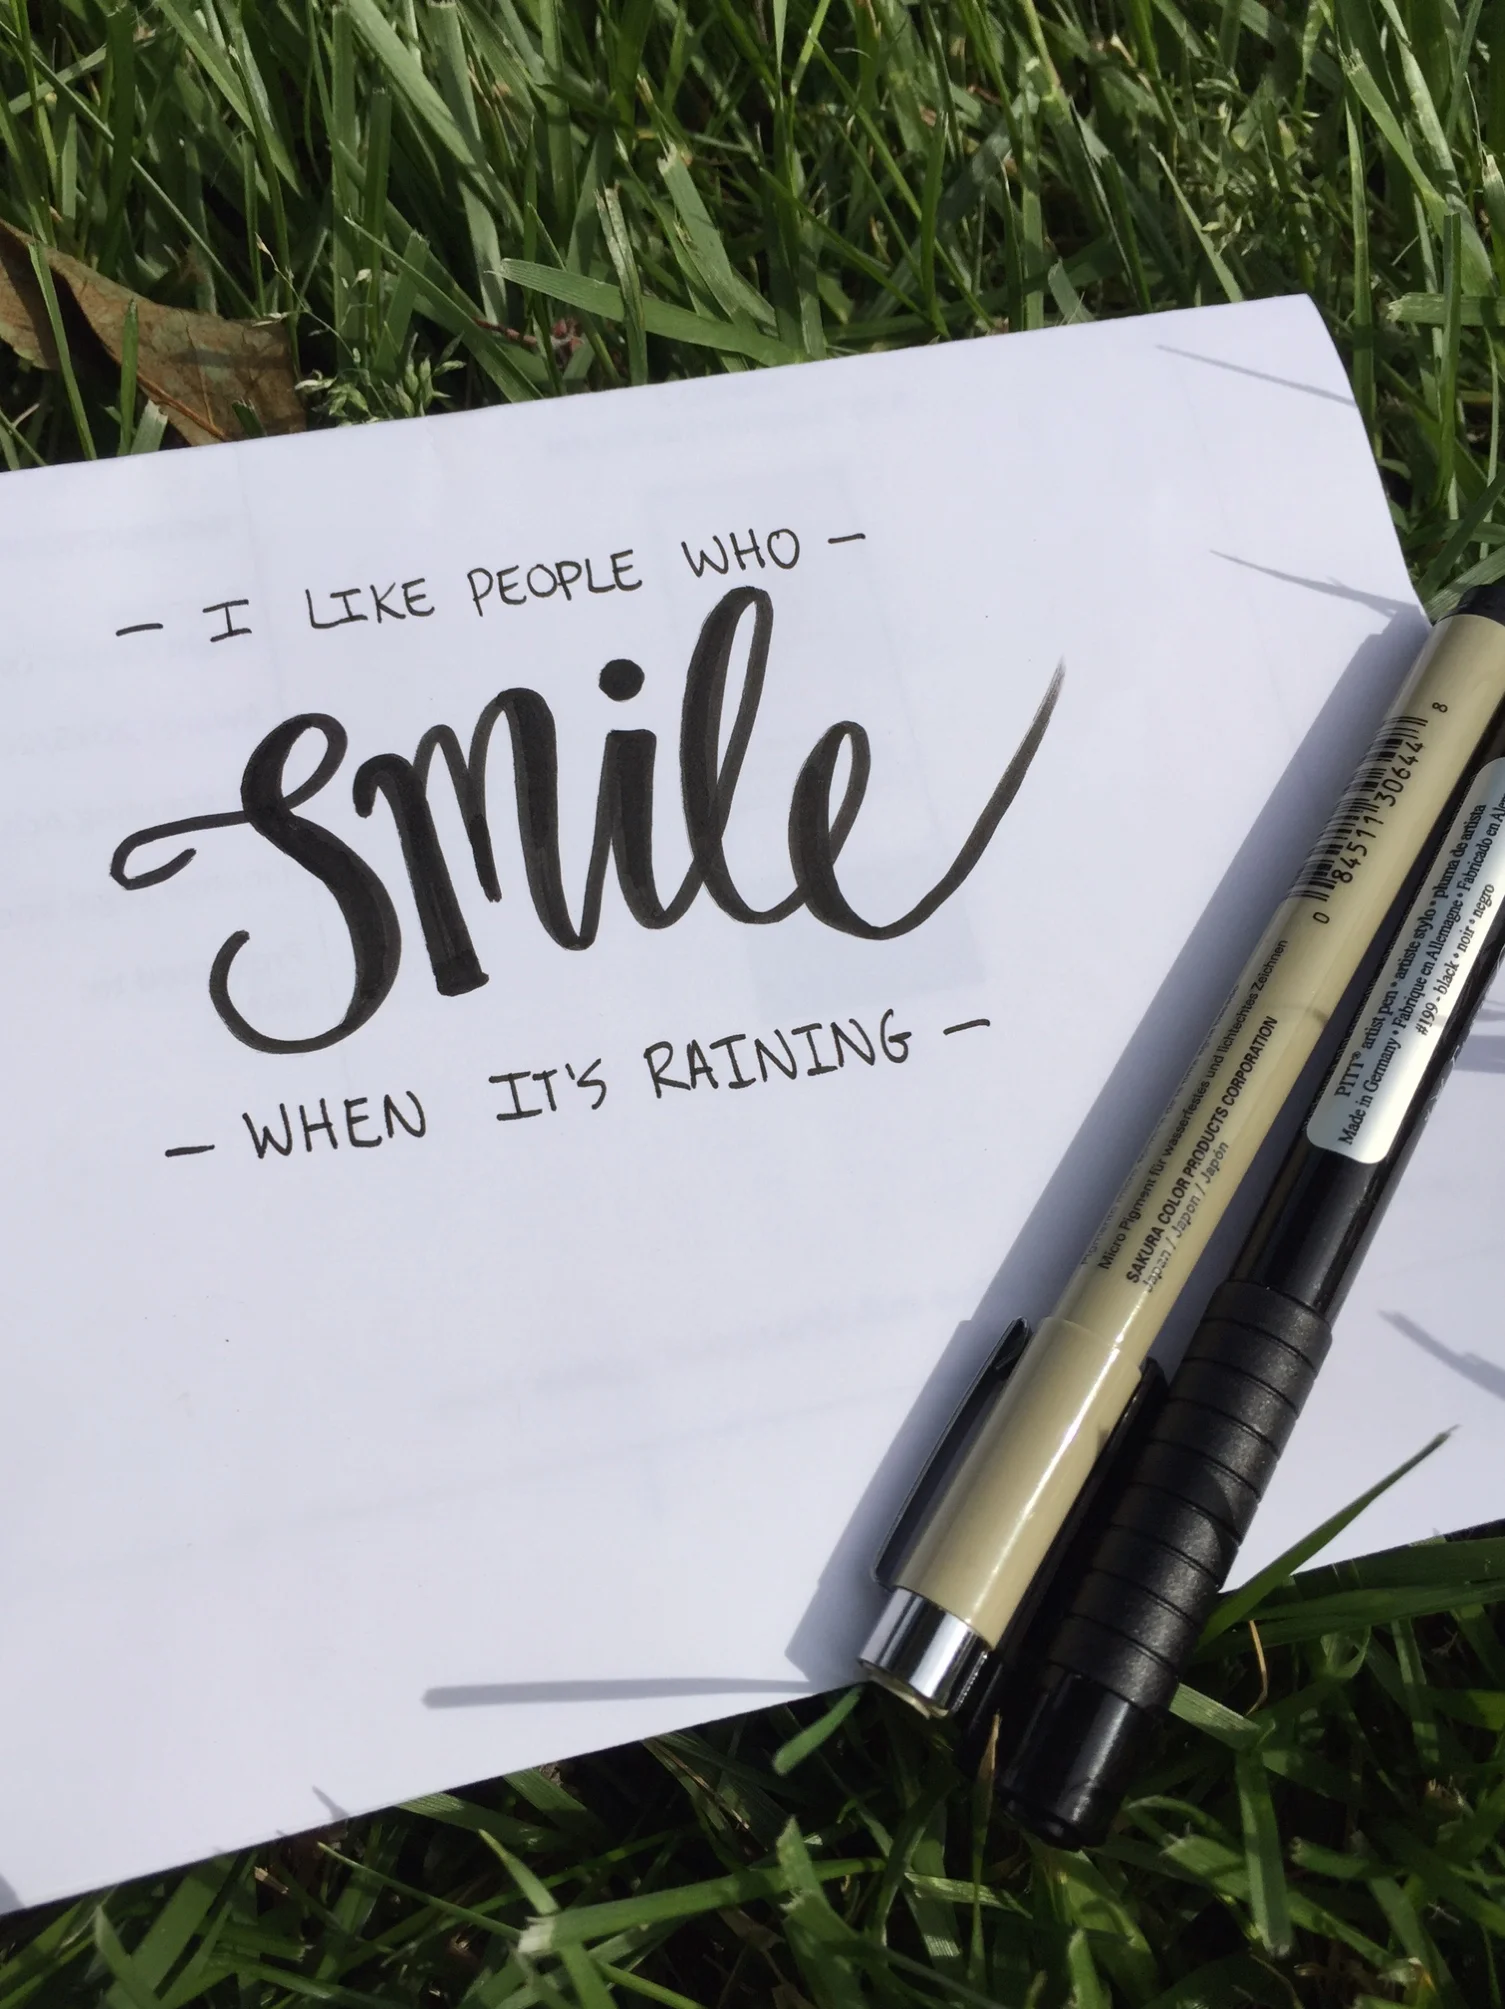 — I LIKE PEOPLE WHO —
Smile
— WHEN IT'S RAINING —
0 84511 30644 8
Micro Pigment für wasserfestes und lichtechtes Zeichnen
SAKURA COLOR PRODUCTS CORPORATION
Japan / Japon / Japón
PITT® artist pen • artiste stylo • pluma de artista
Made in Germany • Fabriqué en Allemagne • Fabricado en
#199 - black • noir • negro